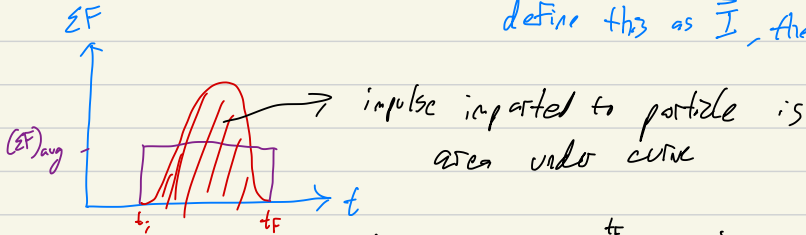 ΣF
define this as I, the
impulse imparted to particle is
(ΣF)avg
area under curve
t
ti
tF
tF